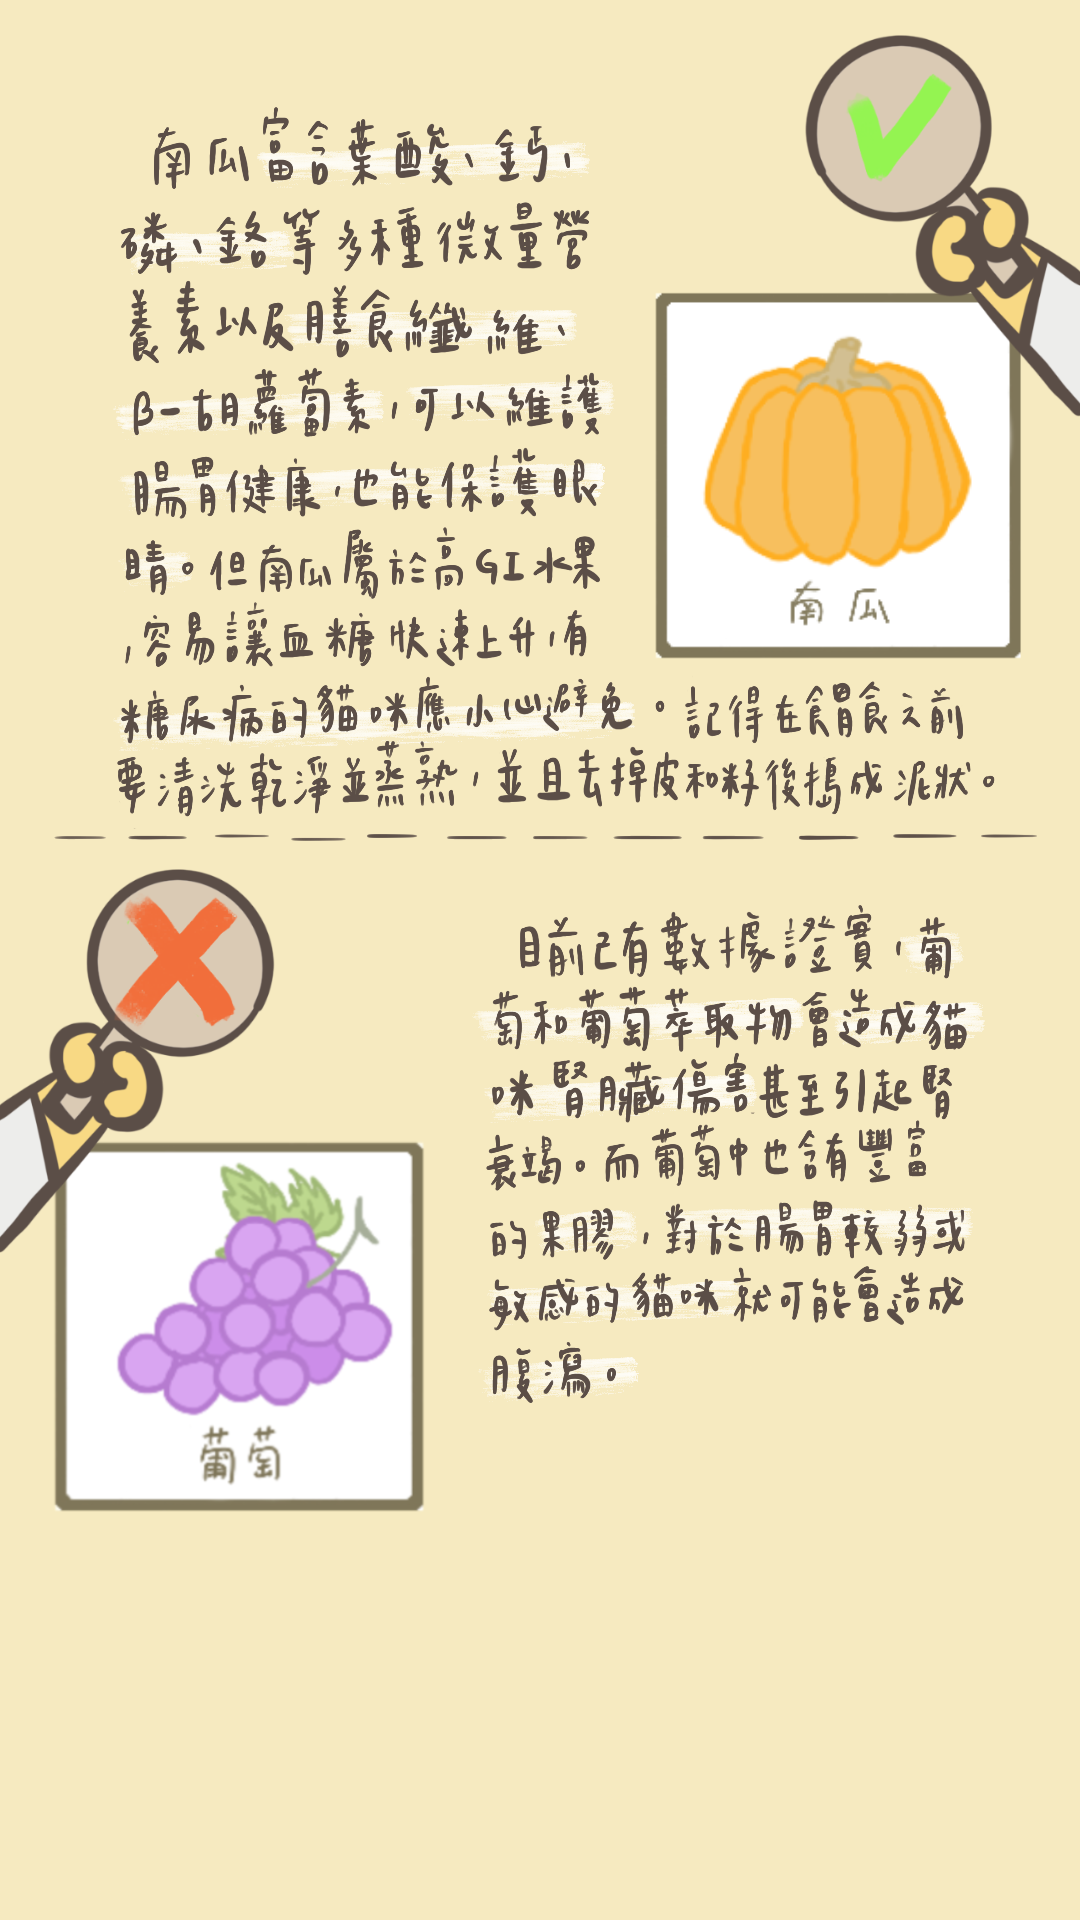 南瓜富含葉酸、鈣、
磷、鉻等多種微量營
養素以及膳食纖維、
β-胡蘿蔔素，可以維護
腸胃健康，也能保護眼
睛。但南瓜屬於高GI水果
，容易讓血糖快速上升，有
糖尿病的貓咪應小心避免。記得在餵食之前
要清洗乾淨並蒸熟，並且去掉皮和籽後搗成泥狀。
南瓜
目前已有數據證實，葡
萄和葡萄萃取物會造成貓
咪腎臟傷害甚至引起腎
衰竭。而葡萄中也含有豐富
的果膠，對於腸胃較弱或
敏感的貓咪就可能會造成
腹瀉。
葡萄